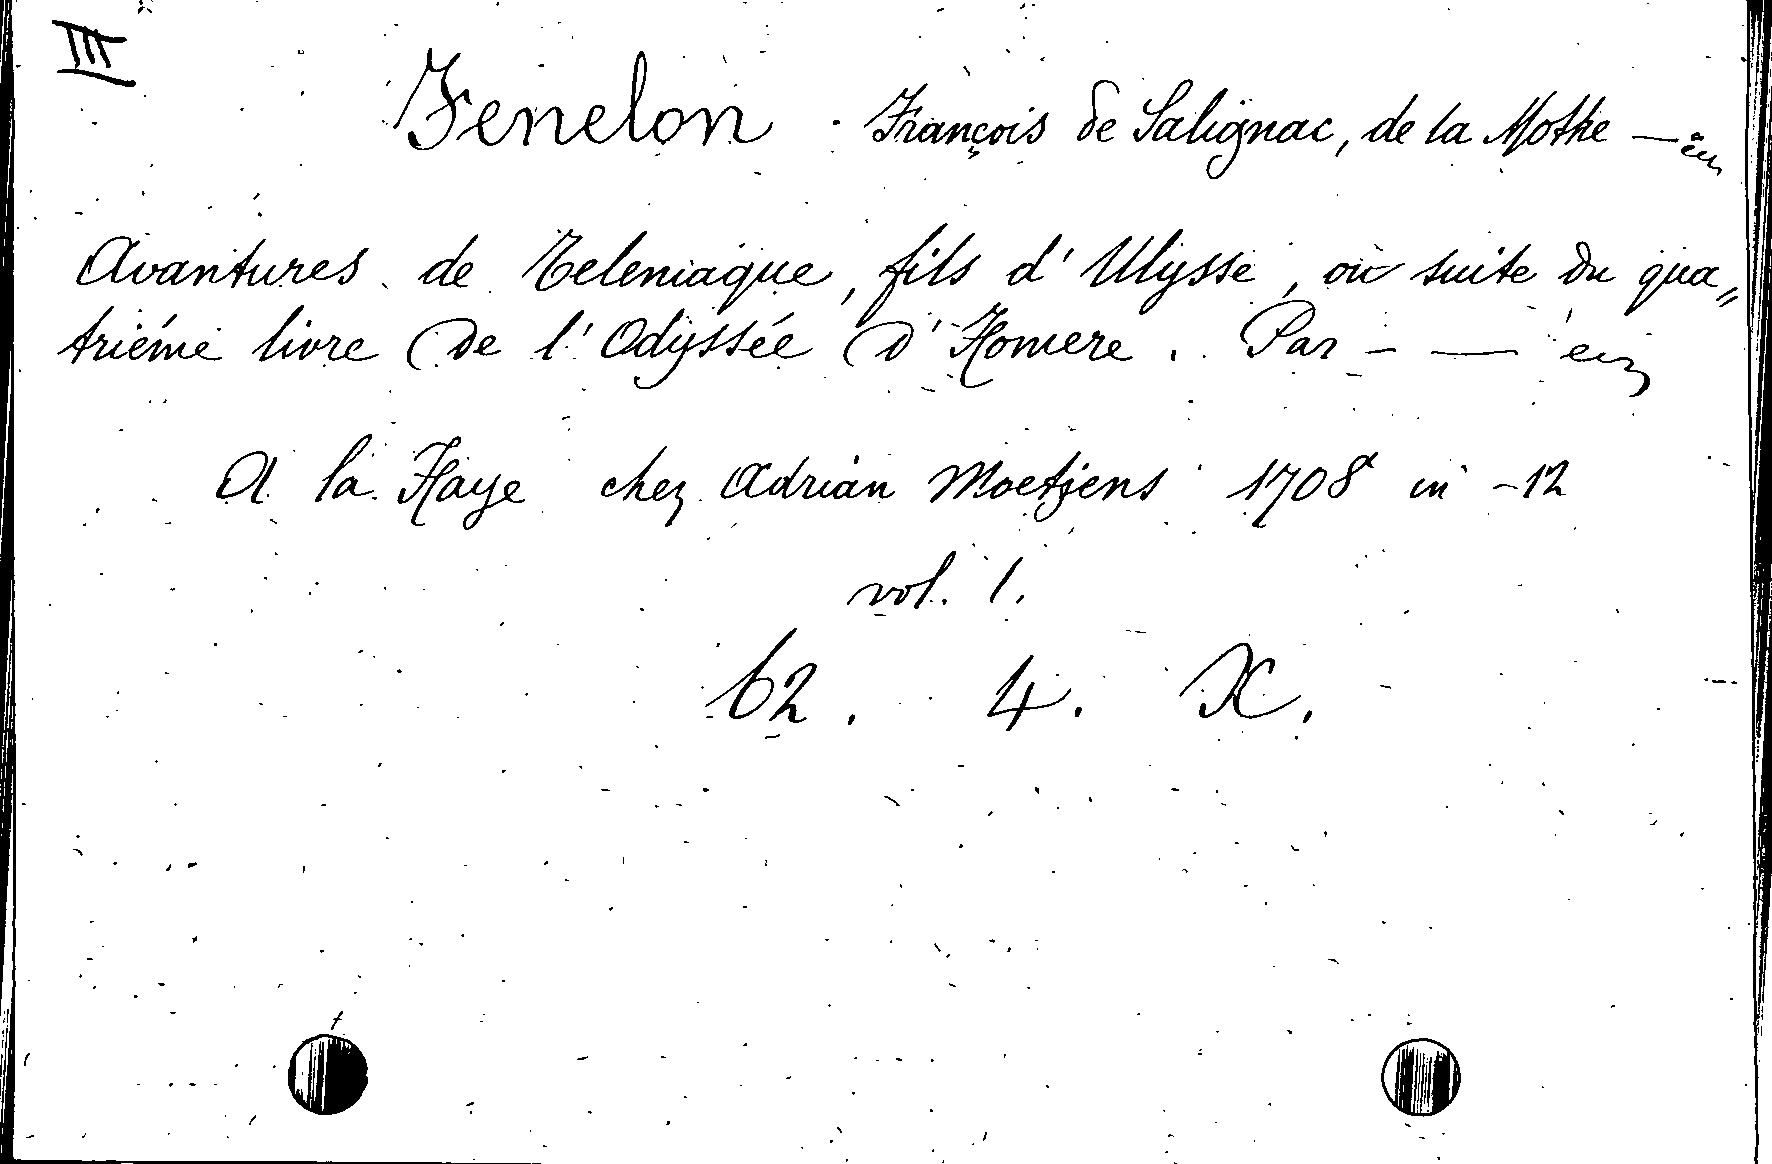 III
Fenelon. François de Salignac, de la Mothe —
Avantures de Telemaque, fils d'Ulysse, où suite du qua„
triéme livre de l'Odyssée d'Homere. Par - —
A la Haye chez Adrian Moetjens 1708 in -12
vol. 1.
62. 4. X.